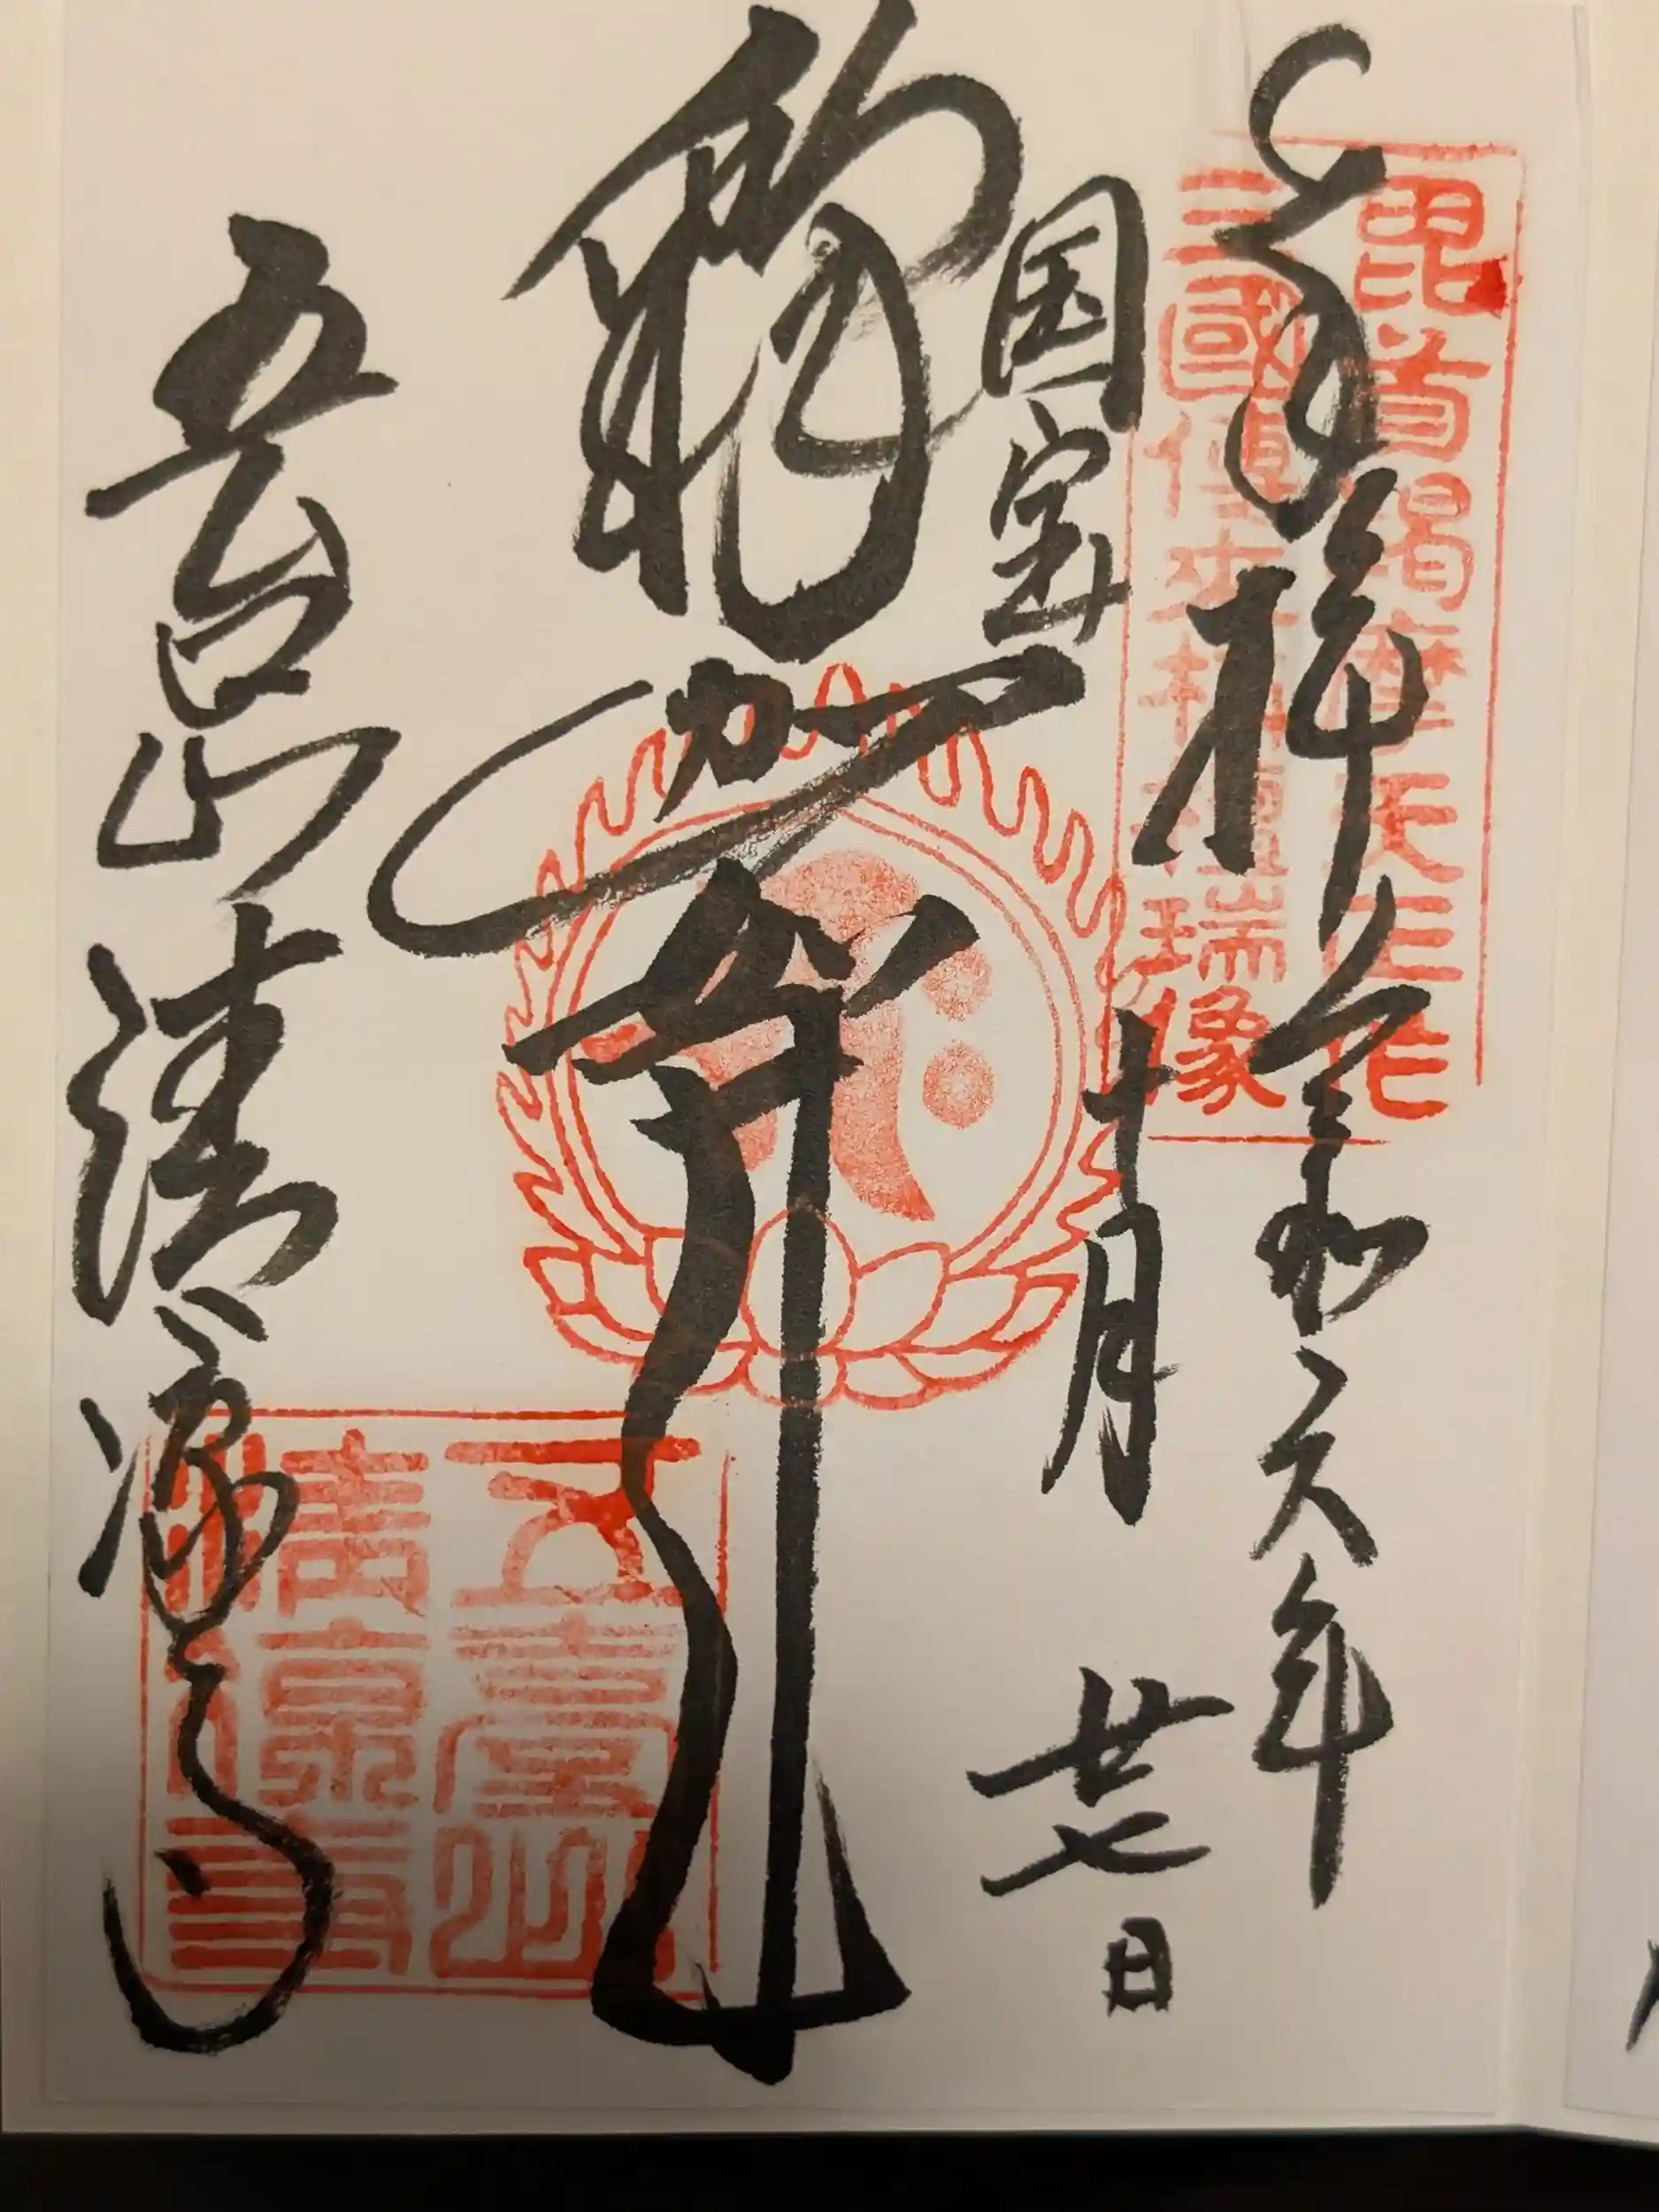 奉拝 令和六年
十月廿七日
国宝
釈迦尊
五台山 清凉寺
毘首羯摩天正作
三國傳来栴檀瑞像
五臺山
清凉寺